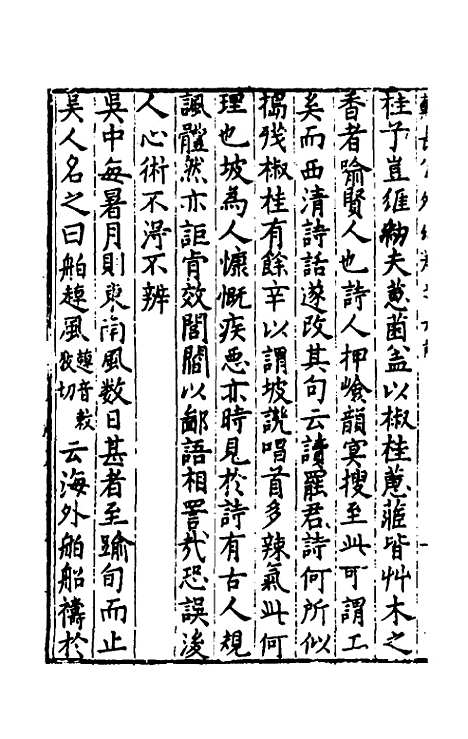 桂子豈維紉夫蕙茵盖以椒桂蕙蓀皆艸木之
香者喻賢人也詩人押嶮韻冥搜至此可謂工
矣而西清詩話遂改其句云讀罷君詩何所似
搗殘椒桂有餘辛以謂坡譏唱首多辣氣此何
理也坡為人慷慨疾惡亦時見於詩有古人規
諷體然亦詎肯效閭閻以鄙語相詈㦲恐誤後
人心術不淂不辨
吳中每暑月則東南風数日甚者至踰旬而止
吴人名之曰舶䑲風䑲音敎敎切云海外舶船禱於